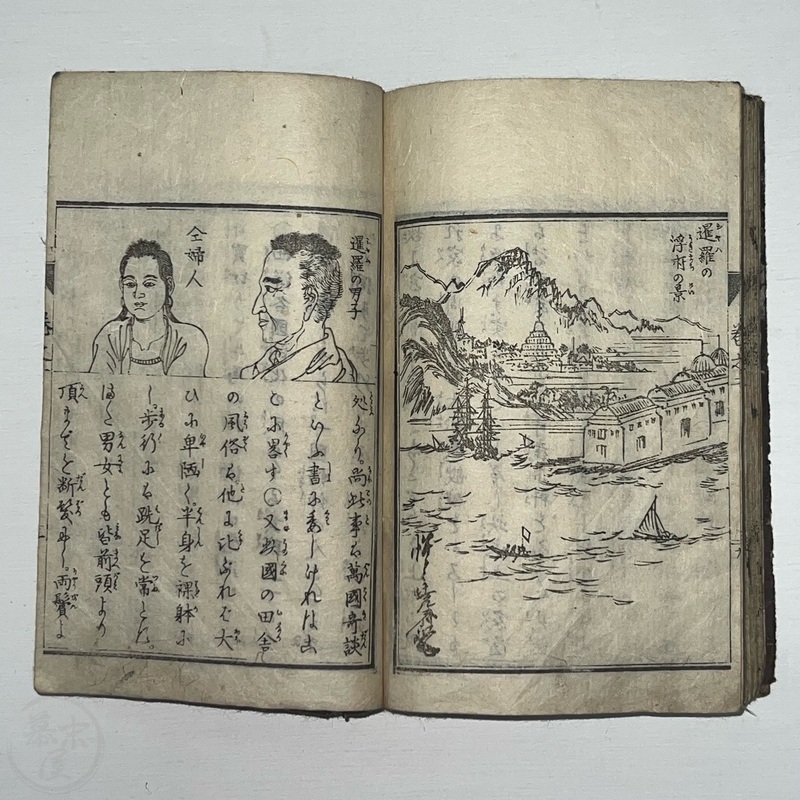 暹羅の
浮府の景
暹羅の男子
仝婦人
処あり。尚此事は萬國奇談
といふ書に委しければ
に畧す〇又 國の田舎
の風俗は他に比ぶれば大
ひに卑陋く半身を裸躰に
し。歩行にも跣足を常とす。
男女とも皆前頭より
頂までを断髪にし。両鬢よ